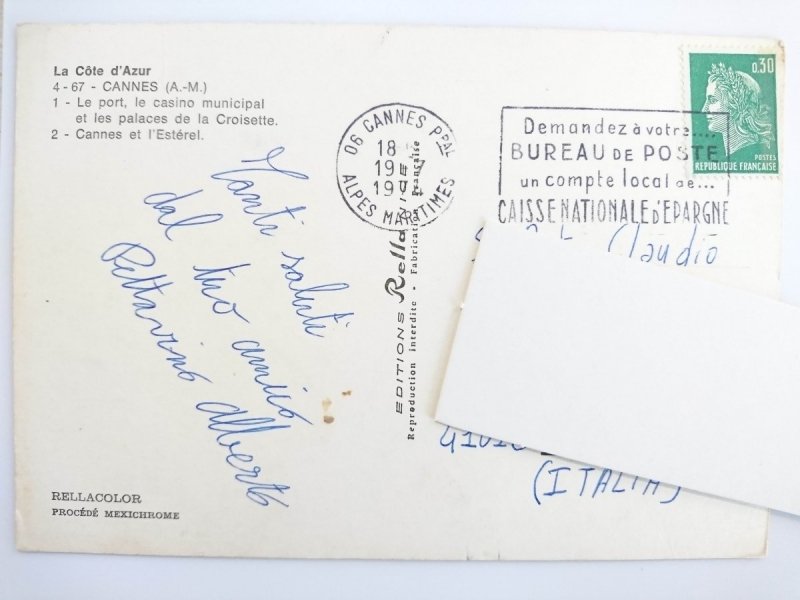 La Côte d'Azur
4-67 - CANNES (A.-M.)
1 - Le port, le casino municipal
et les palaces de la Croisette.
2 - Cannes et l'Estérel.
Tanti saluti
dal tuo amico
Alberto
RELLACOLOR
PROCÉDÉ MEXICHROME
EDITIONS Rella
Reproduction interdite - Fabrication Française
06 CANNES PPAL
18
19
ALPES MARITIMES
Demandez à votre....
BUREAU DE POSTE
un compte local de...
CAISSE NATIONALE D'EPARGNE
0,30
POSTES
REPUBLIQUE FRANÇAISE
Claudio
(ITALIA)